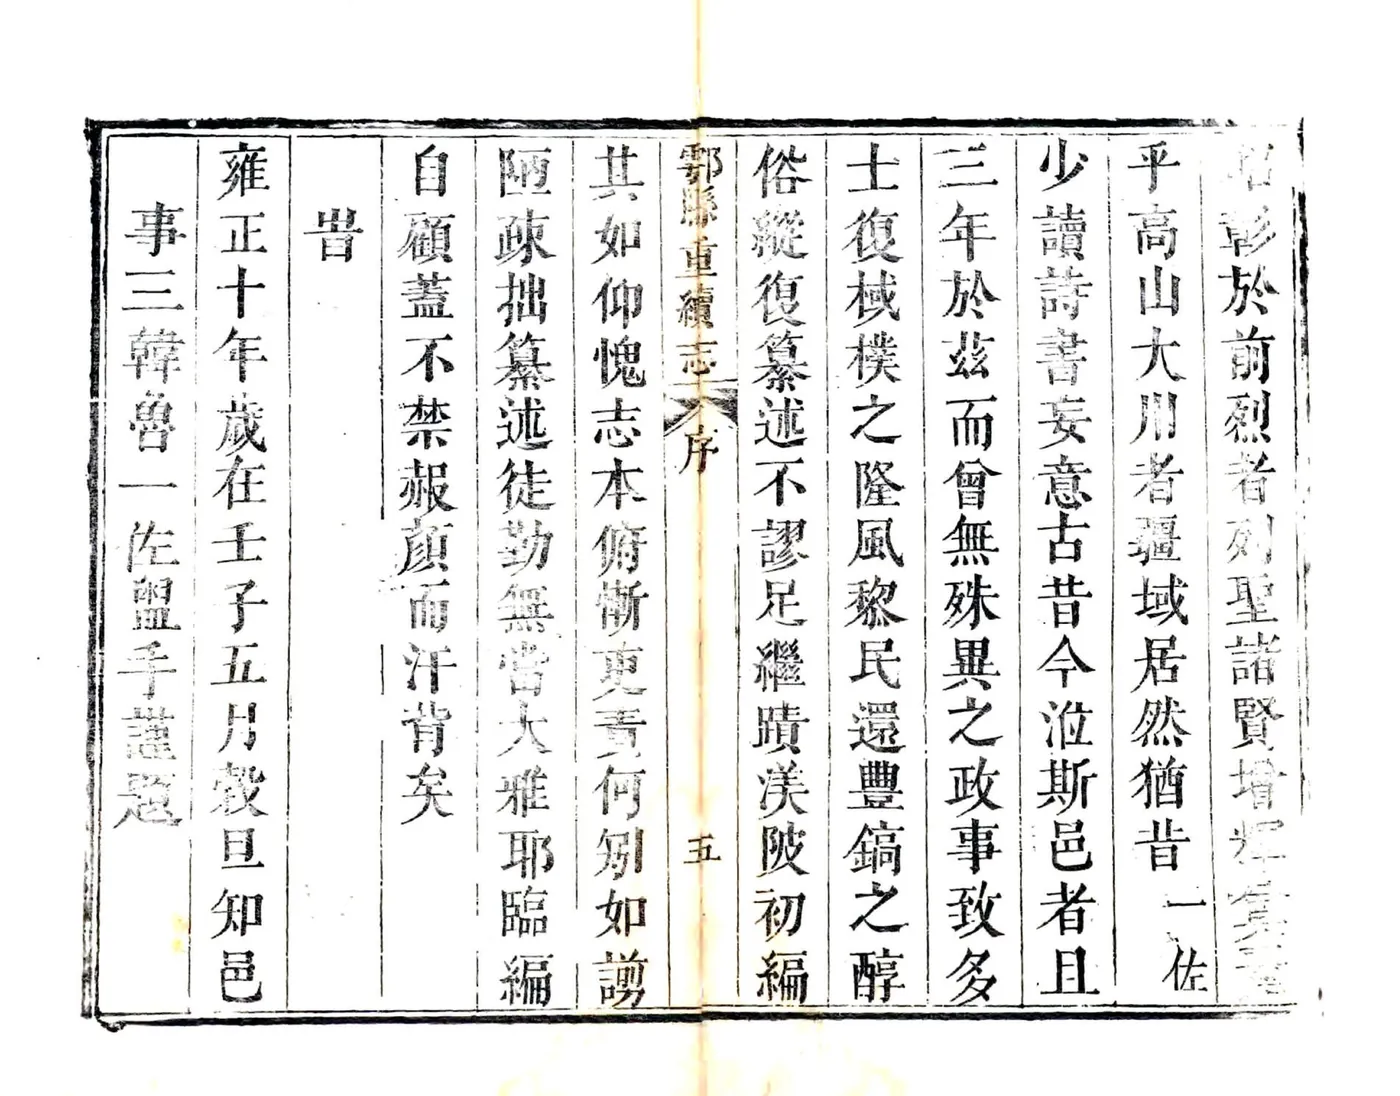 昭彰於前烈者列聖諸賢增輝
乎高山大川者疆域居然猶昔一佐
少讀詩書妄意古昔今涖斯邑者且
三年於茲而曾無殊異之政事致多
士復棫樸之隆風黎民還豐鎬之醇
俗縱復纂述不謬足繼蹟渼陂初編
鄠縣重續志 序 五
其如仰愧志本俯慚吏責何矧如謭
陋疎拙纂述徒勤無當大雅耶臨編
自顧蓋不禁赧顏而汗背矣
旹
雍正十年歲在壬子五月穀旦知邑
事三韓魯一佐盥手謹題